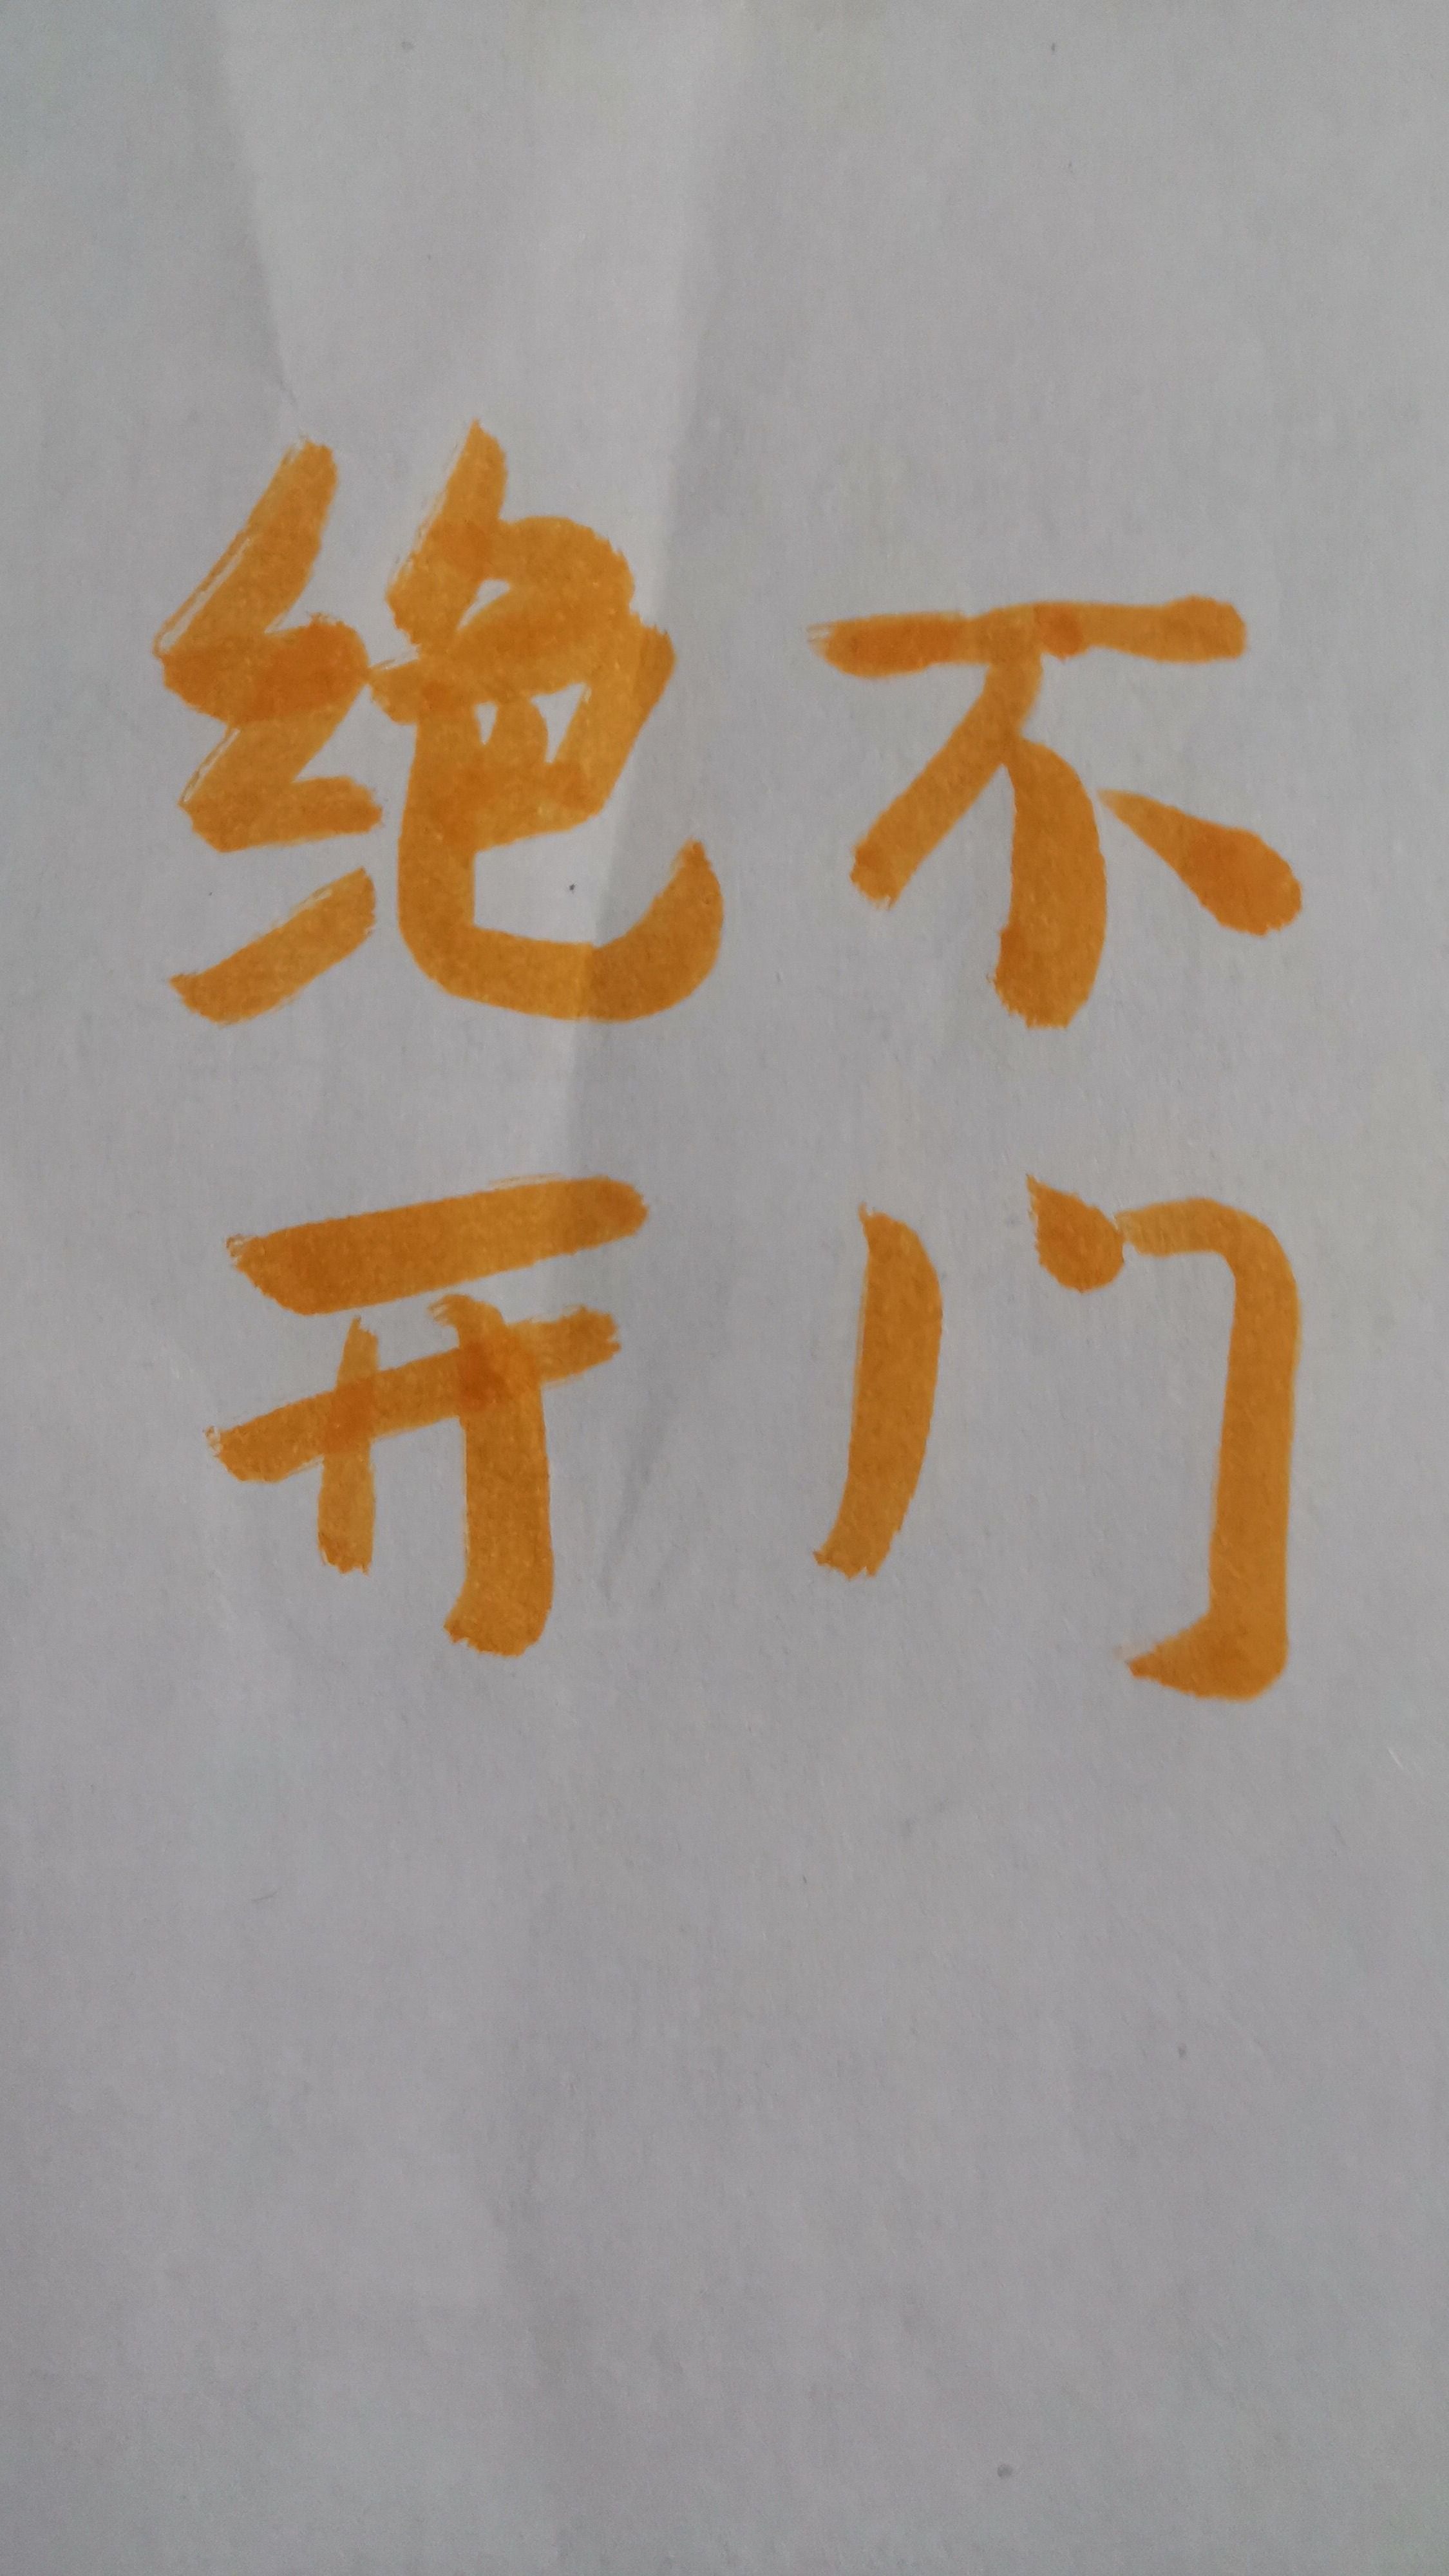 绝不
开门